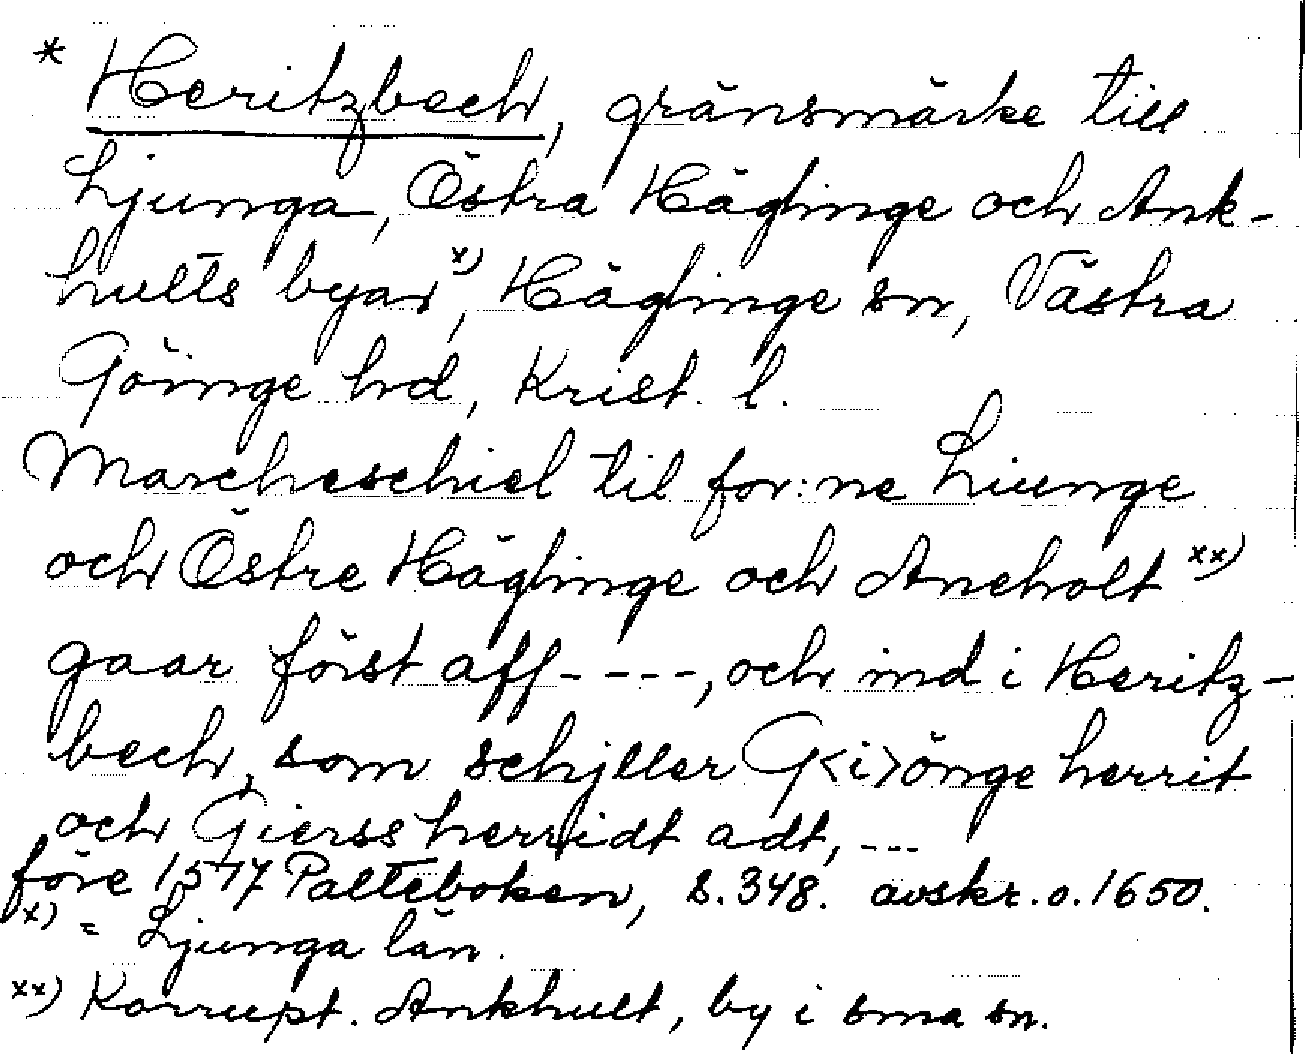 * Heritzbech, gränsmärke till
Ljunga, Östra Häglinge och Ank-
hults byar x), Häglinge sn, Västra
Göinge hd, Krist. l.
Marcheschiel til for:ne Liunge
och Östre Häglinge och Ancholt xx)
gaar först aff - - - -, och ind i Heritz-
bech, som schjller G<i>önge herrit
och Gierss herridt adt, ---
före 1577 Palteboken, s. 348. avskr. o. 1650.
x) = Ljunga län.
xx) Korrupt. Ankhult, by i sma sn.